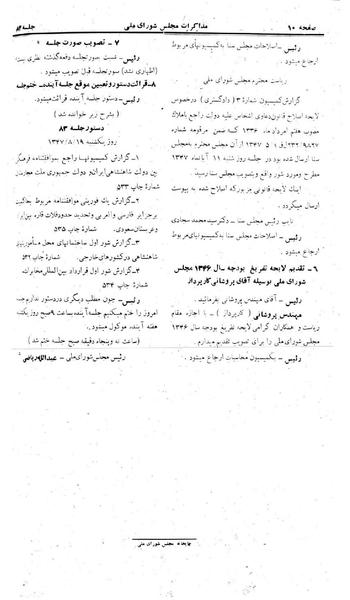 صفحه ۱۰
مذاکرات مجلس شورای ملی
جلسه ۸۲
رئیس ـ اصلاحات مجلس سنا به کمیسیونهای مربوط
ارجاع میشود.
ریاست محترم مجلس شورای ملی
گزارش کمیسیون شماره ۳ (دادگستری) درخصوص
لایحه اصلاح قانون دعاوی اشخاص علیه دولت راجع باملاک
مصوب هفتم امرداد ماه ۱۳۳۶ ضمن مرقومه شماره
سنا ارسال شده بود در جلسه روز شنبه ۱۱ آبانماه ۱۳۴۷
مطرح ومورد شور واقع وبتصویب مجلس سنا رسید.
اینك لایحه قانونی مزبور که اصلاح شده به پیوست
ارسال میگردد.
نایب رئیس مجلس سنا ـ دکترسیدمحمد سجادی
رئیس ـ اصلاحات مجلس سنا به کمیسیونهای مربوط
ارجاع میشود.
۶ ـ تقدیم لایحه تفریغ بودجه سال ۱۳۴۶ مجلس
شورای ملی بوسیله آقای پروشانی کارپرداز
رئیس ـ آقای مهندس پروشانی بفرمائید.
مهندس پروشانی (کارپرداز) ـ با اجازه مقام
ریاست و همکاران گرامی لایحه تفریغ بودجه سال ۱۳۴۶
مجلس شورای ملی را برای تصویب تقدیم میدارم.
رئیس ـ بکمیسیون محاسبات ارجاع میشود.
۷ ـ تصویب صورت جلسه
رئیس ـ نسبت بصورتجلسه دفعه گذشته نظری نیست
(اظهاری نشد) صورتجلسه قبل تصویب میشود.
۸ـ قرائت دستور و تعیین موقع جلسه آینده ـ ختم جلسه
رئیس ـ دستور جلسه آینده قرائت میشود.
(بشرح زیر خوانده شد)
دستور جلسه ۸۳
روز یکشنبه ۱۳۴۷/۸/۱۹
۱ـ گزارش کمیسیونها راجع بموافقتنامه فرهنگی
بین دولت شاهنشاهی ایران و دولت جمهوری ملت مجارستان
شماره چاپ ۵۳۳
۲ـ گزارش یك فوریتی موافقتنامه مربوط بحاکمیت
برجزایر فارسی و العربی وتحدید حدود فلات قاره بین ایران
وعربستان سعودی. شماره چاپ ۵۳۵
۳ـ گزارش شور اول ساختمانهای محل مأموریتهای
شاهنشاهی درکشورهای خارجی. شماره چاپ ۵۳۲
۴ـ گزارش شور اول قرارداد بین المللی مخابرات.
شماره چاپ ۵۳۴
رئیس ـ چون مطلب دیگری در دستور نداریم جلسه
امروز را ختم میکنیم جلسه آینده ساعت ۹ صبح روز یکشنبه
هفته آینده موکول میشود.
(ساعت نه و پنجاه دقیقه صبح جلسه ختم شد)
رئیس مجلس شورای ملی ـ عبدالله ریاضی
چاپخانه مجلس شورای ملی